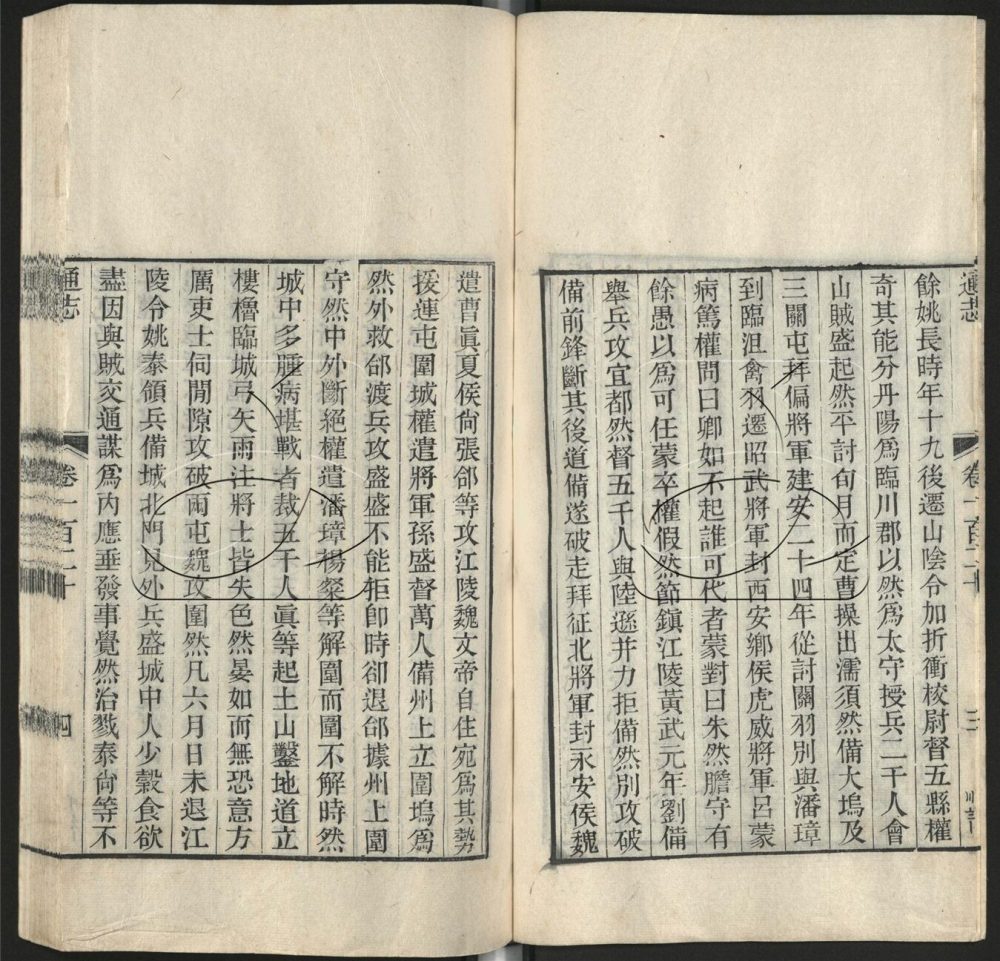 通志
卷一百二十
三
餘姚長時年十九後遷山陰令加折衝校尉督五縣權
奇其能分丹陽爲臨川郡以然爲太守授兵二千人會
山賊盛起然平討旬月而定曹操出濡須然備大塢及
三關屯拜偏將軍建安二十四年從討關羽別與潘璋
到臨沮禽羽遷昭武將軍封西安鄉侯虎威將軍呂蒙
病篤權問曰卿如不起誰可代者蒙對曰朱然膽守有
餘愚以爲可任蒙卒權假然節鎮江陵黃武元年劉備
舉兵攻宜都然督五千人與陸遜并力拒備然別攻破
備前鋒斷其後道備遂破走拜征北將軍封永安侯魏
遣曹眞夏侯尙張郃等攻江陵魏文帝自住宛爲其勢
援連屯圍城權遣將軍孫盛督萬人備州上立圍塢爲
然外救郃渡兵攻盛盛不能拒卽時卻退郃據州上圍
守然中外斷絕權遣潘璋楊粲等解圍而圍不解時然
城中多腫病堪戰者裁五千人眞等起土山鑿地道立
樓櫓臨城弓矢雨注將士皆失色然晏如而無恐意方
厲吏士伺閒隙攻破兩屯魏攻圍然凡六月日未退江
陵令姚泰領兵備城北門見外兵盛城中人少穀食欲
盡因與賊交通謀爲內應垂發事覺然治戮泰尙等不
通志
卷一百二十
四